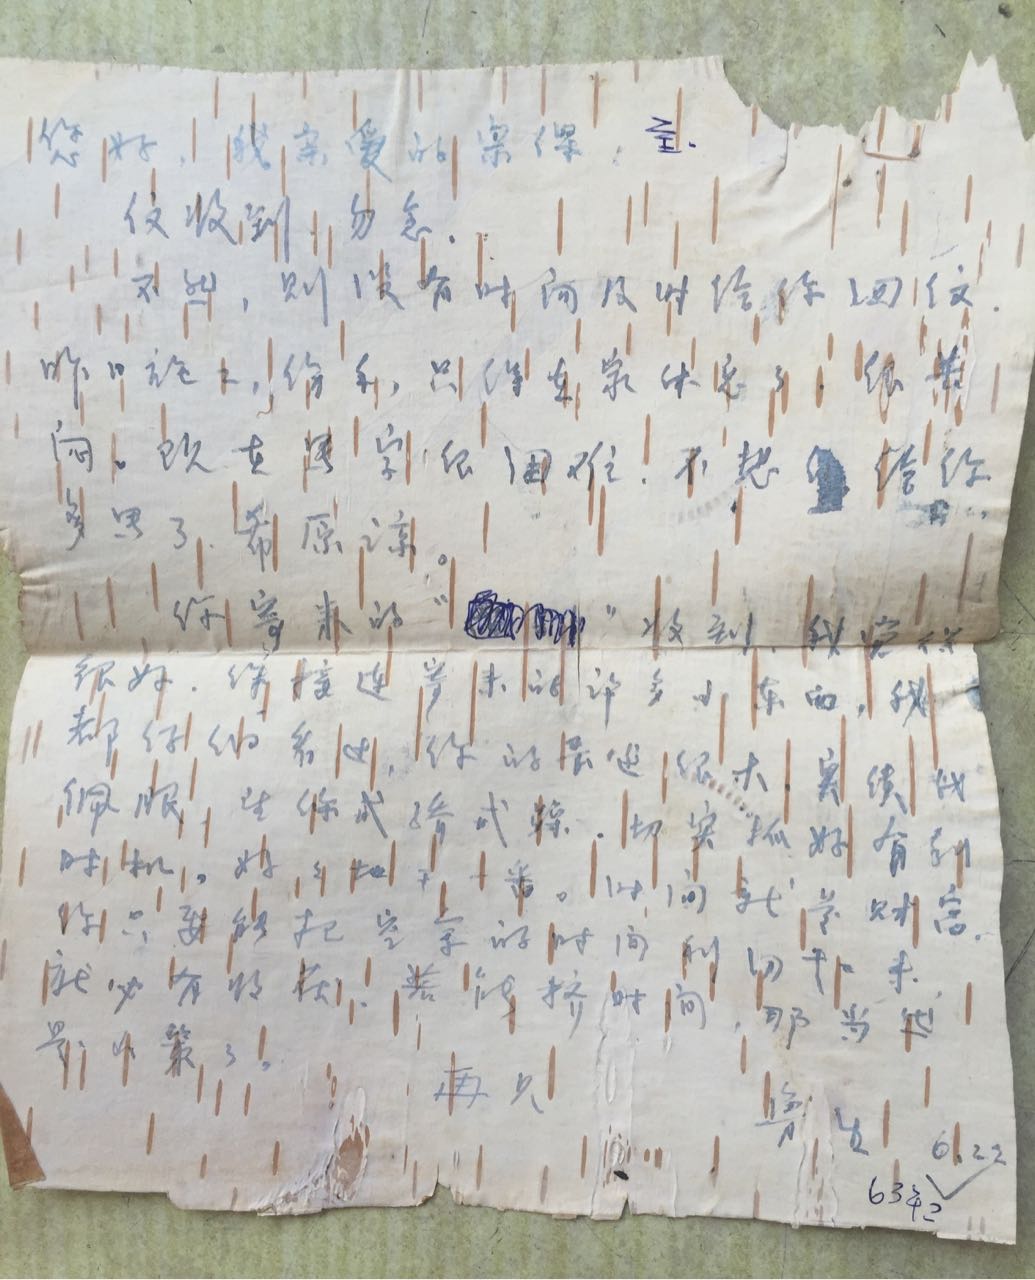 您好，我亲爱的宗保：
仅收到，勿念。
不然，则没有时间及时给你回仅．
昨日 ，只得在家休息了．很
闷。现在写字很困难．不想 给你
多写了．希原谅。
你寄来的“ ”收到，我觉得
很好．你接连寄来的许多小东西，我
都仔细看过，你的 很大，实绩
佩服．望你戒骄戒躁．切实抓好有利
时机，好好地干一番。时间就是财富．
你只要能把空余的时间利 来，
就必有收获．若能挤时间，那当然
是 策了。
再见
生
6.22
63年